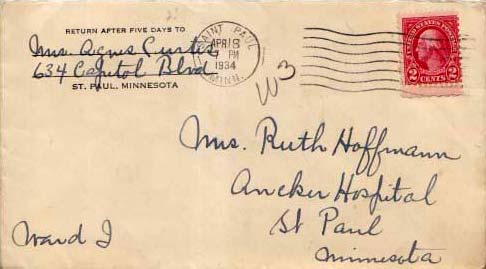 RETURN AFTER FIVE DAYS TO
Mrs. Agnes Curtis
634 Capitol Blvd
ST. PAUL, MINNESOTA
SAINT PAUL
APR 8
7 PM
1934
MINN.
W3
UNITED STATES POSTAGE
2 CENTS 2
Mrs. Ruth Hoffmann
Ancker Hospital
St Paul
Minnesota
Ward I